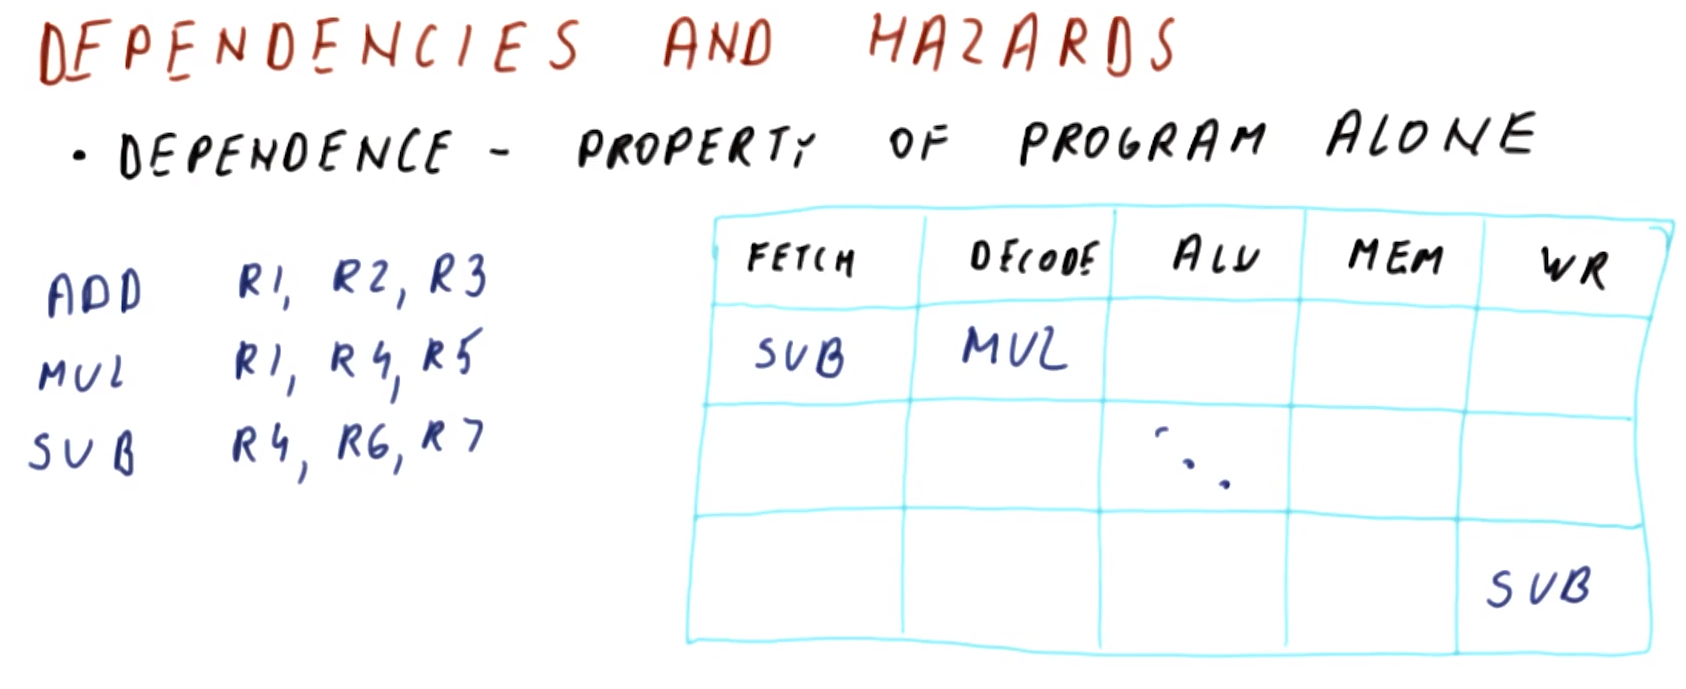 DEPENDENCIES AND HAZARDS
• DEPENDENCE - PROPERTY OF PROGRAM ALONE
ADD R1, R2, R3
MUL R1, R4, R5
SUB R4, R6, R7
FETCH DECODE ALU MEM WR
SUB MUL
SUB